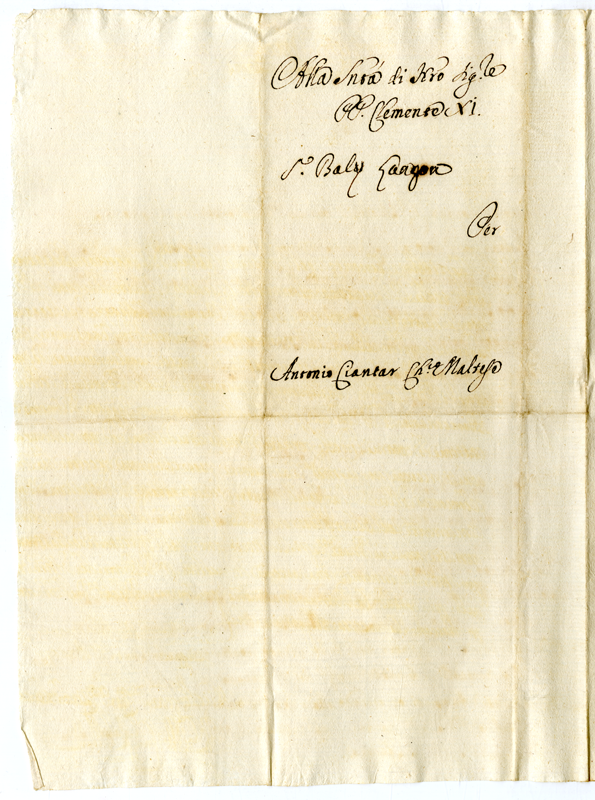 Alla Sntà di Nro Sig.re
PP. Clemente XI.
S.r Baly Langon
Per
Antonio Ciantar Ch.co Maltese